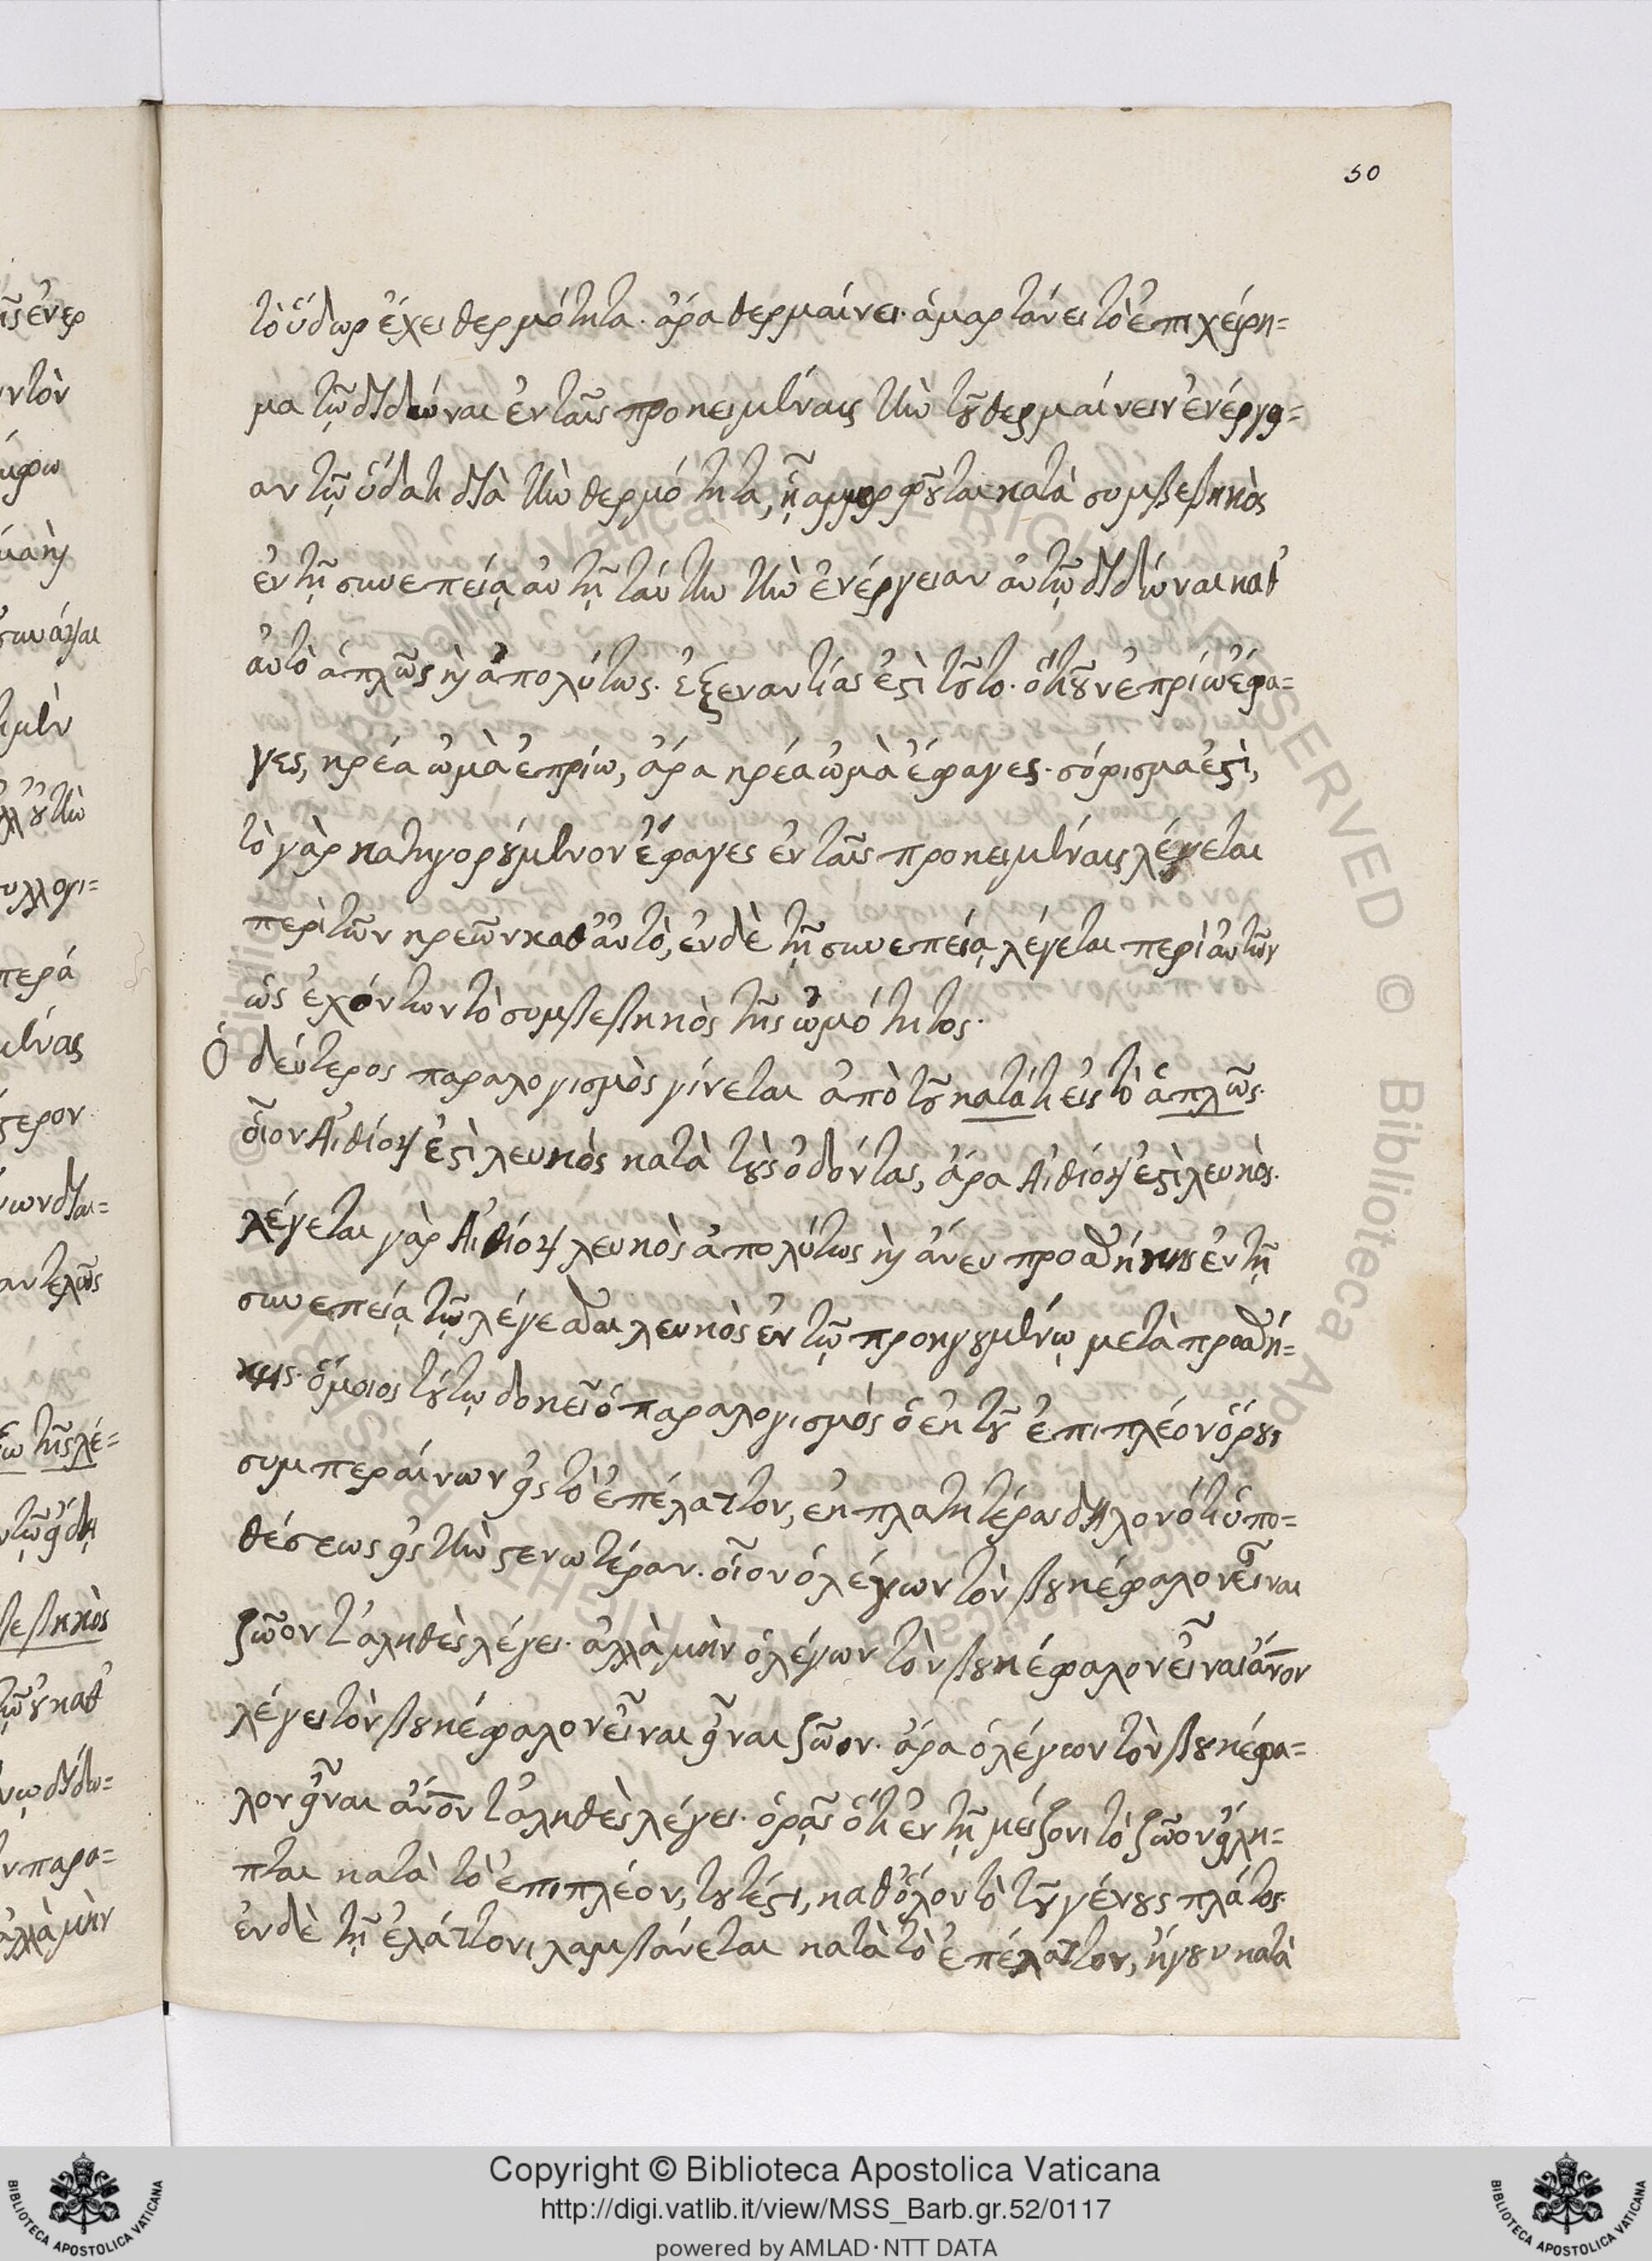 50
τὸ ὕδωρ ἔχει θερμότητα. ἄρα θερμαίνει. ἁμαρτάνει τὸ ἐπιχείρη=
μα τῷ διδόναι ἐν ταῖς προκειμέναις τὴν τοῦ θερμαίνειν ἐνέργει=
αν τῷ ὕδατι διὰ τὴν θερμότητα, κατὰ συμβεβηκὸς
ἐν τῇ συνεπείᾳ αὐτῇ ταύτην τὴν ἐνέργειαν αὐτῷ διδόναι καθ'
αὑτὸ ἁπλῶς καὶ ἀπολύτως. ἐξεναντίας ἐστὶ τοῦτο. ὅτι οὖν ἐπρίω ἔφα=
γες, κρέα ὠμὰ ἐπρίω, ἄρα κρέα ὠμὰ ἔφαγες. σόφισμα ἐστὶ,
τὸ γὰρ κατηγορούμενον ἔφαγες ἐν ταῖς προκειμέναις λέγεται
περὶ τῶν κρεῶν καθ' αὑτὸ, ἐν δὲ τῇ συνεπείᾳ λέγεται περὶ αὐτῶν
ὡς ἐχόντων τὸ συμβεβηκὸς τῆς ὠμότητος.
Ὁ δεύτερος παραλογισμὸς γίνεται ἀπὸ τοῦ κατά τι εἰς τὸ ἁπλῶς.
οἷον Αἰθίοψ ἐστὶ λευκὸς κατὰ τοὺς ὀδόντας, ἄρα Αἰθίοψ ἐστὶ λευκὸς.
λέγεται γὰρ Αἰθίοψ λευκὸς ἀπολύτως καὶ ἄνευ προσθήκης ἐν τῇ
συνεπείᾳ τῷ λέγεσθαι λευκὸς ἐν τῷ προηγουμένῳ μετὰ προσθή=
κης. ὅμοιος τούτῳ δοκεῖ ὁ παραλογισμός ὁ ἐκ τοῦ ἐπιπλέον ὅρου
συμπεραίνων εἰς τὸ ἐπέλαττον, ἐκ πλατυτέρας δηλονότι ὑπο=
θέσεως εἰς τὴν στενωτέραν. οἷον ὁ λέγων τὸν βουκέφαλον εἶναι
ζῶον τἀληθὲς λέγει. ἀλλὰ μὴν ὁ λέγων τὸν βουκέφαλον εἶναι ἄνον
λέγει τὸν βουκέφαλον εἶναι εἶναι ζῶον. ἄρα ὁ λέγων τὸν βουκέφα=
λον εἶναι ἄνον τἀληθὲς λέγει. ὁρᾷς ὅτι ἐν τῇ μείζονι τὸ ζῶον εἴλη=
πται κατὰ τὸ ἐπιπλέον, τουτέστι, καθ' ὅλον τὸ τοῦ γένους πλάτος.
ἐν δὲ τῇ ἐλάττονι λαμβάνεται κατὰ τὸ ἐπέλαττον, ἤγουν κατὰ
Copyright © Biblioteca Apostolica Vaticana
http://digi.vatlib.it/view/MSS_Barb.gr.52/0117
powered by AMLAD·NTT DATA